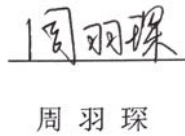 周羽琛
周羽琛